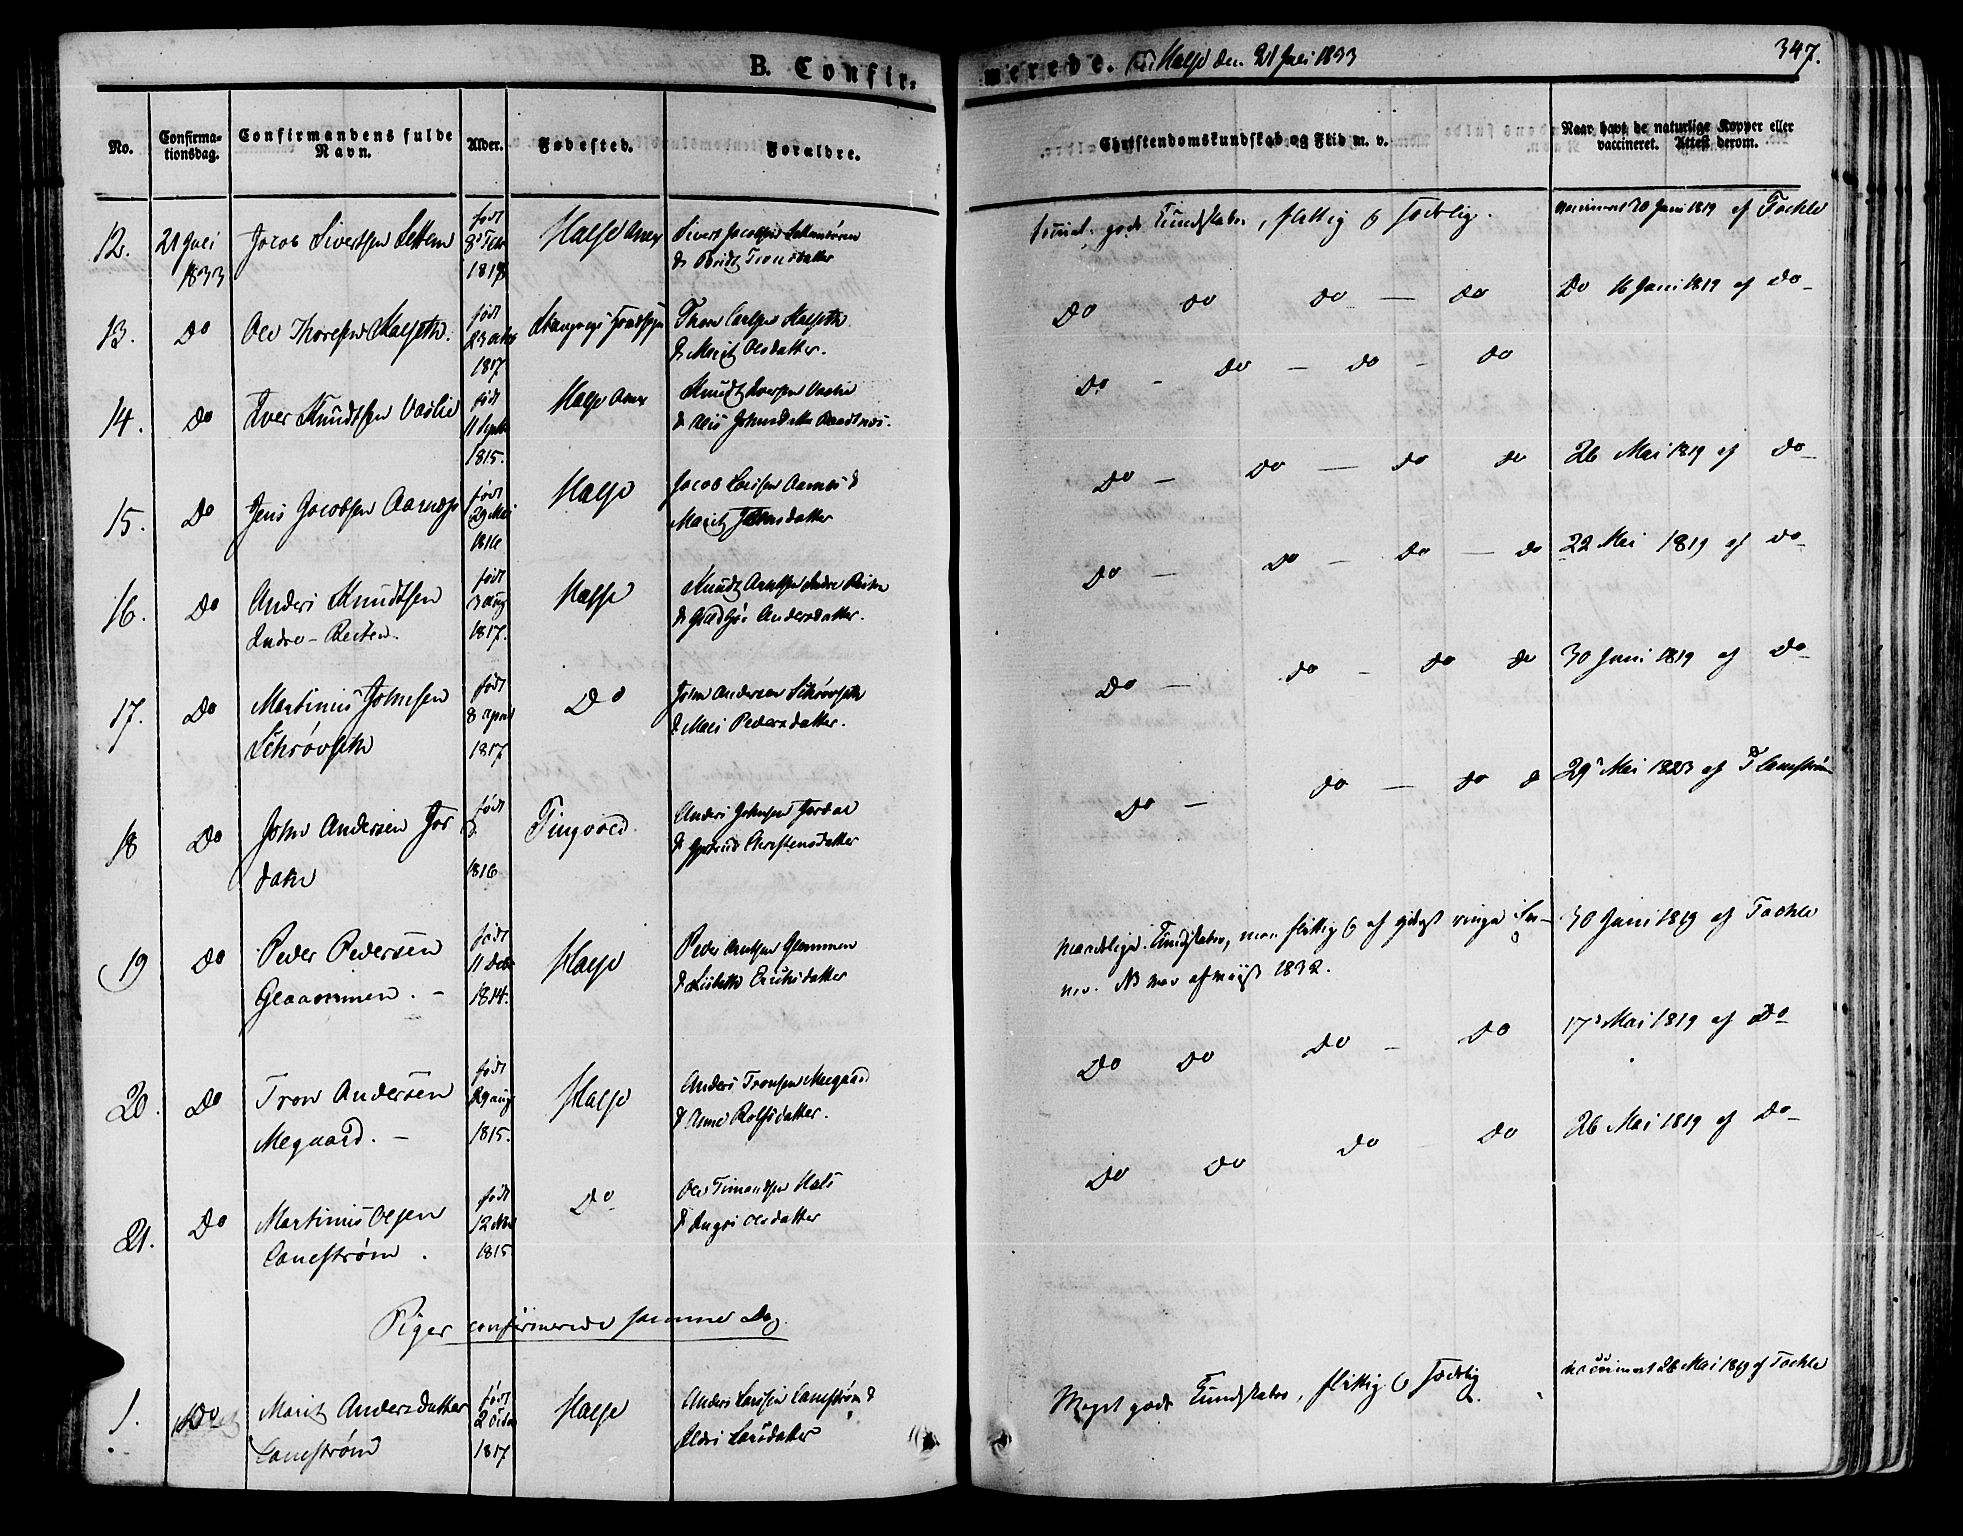 B. Confirmerede. Halse den 21 Juli 1833
347.
No.
Confirmationsdag.
Confirmandens fulde Navn.
Alder.
Fødested.
Forældre.
Christendomskundskab og Flid m. v.
Naar havt de naturlige Kopper eller vaccineret. Attest derom.
12. 21 Juli 1833
Jacob Sivertsen Settem
født 8 Febr 1818
Halse Anex
Sivert Jacobsen
& Beridt Tronsdatter
gode Kundskaber, flittig & sædelig.
vaccineret 20 Juni 1819 af Tochle
13. Do
Ole Thoresen Halseth.
født 23 1817
Thore
& Marit Olsdatter.
Do Do Do — Do
Do 16 Juni 1819 af Do
14. Do
Iver Knudtsen Vaslie
født 11 Septb 1815.
Halse Anex
Knudt Iversen Vaslie
Do — Do — Do — Do
15. Do
Jens Jacobsen Aarnæs
født 29 Mai 1816
Halse
Jacob Larsen Aarnes &
Marit Johnsdatter
Do — Do — Do Do
26 Mai 1819 af Do
16. Do
Anders Knudtsen
Indre-Reiten.
født 3 Aug 1817.
Halse
Knudt Arntsen Indre Reiten
& Andersdatter.
Do — Do — Do — Do
22 Mai 1819 af Do
17. Do
Martinus Johnsen
Schrøvseth
født 8 April 1817
Do
John Andersen Schrøvseth
& Mali Pedersdatter.
Do — Do — Do Do
30 Juni 1819 af Do
18 Do
John Andersen Jordahl
født 1816
Tingvold.
Anders Johnsen Jordal
& Gjertrud Christensdatter
Do — Do — Do Do
29 Mai 1823 af
19 Do
Peder Pedersen
Glaammen. —
født 11 Octbr 1814.
Halse
Peder Arntsen Glammen
& Lisbeth Eriksdatter
Maadelige Kundskaber, men flittig & af
NB var afviist 1832.
30 Juni 1819 af Tochle
20. Do
Tron Andersen
Megaard. —
født 29 Aug 1815.
Halse
Anders Tronsen Megaard
& Ane Rolfsdatter.
Do Do Do — Do
17 Mai 1819 af Do
21. Do
Martinus Olsen
Lanestrøm.
født 12 1815
Do
Ole Simonsen Hals
& Ingri Olsdatter
Do Do Do — Do
26 Mai 1819 af Do
Piger confirmerede samme Dag.
1. Do
Marit Andersdatter
Lanestrøm
født 2 1817
Halse
Anders Larsen Lanestrøm &
Eldri Larsdatter
Meget gode Kundskaber, flittig & sædelig.
vaccineret 26 Mai 1819 af Tochle